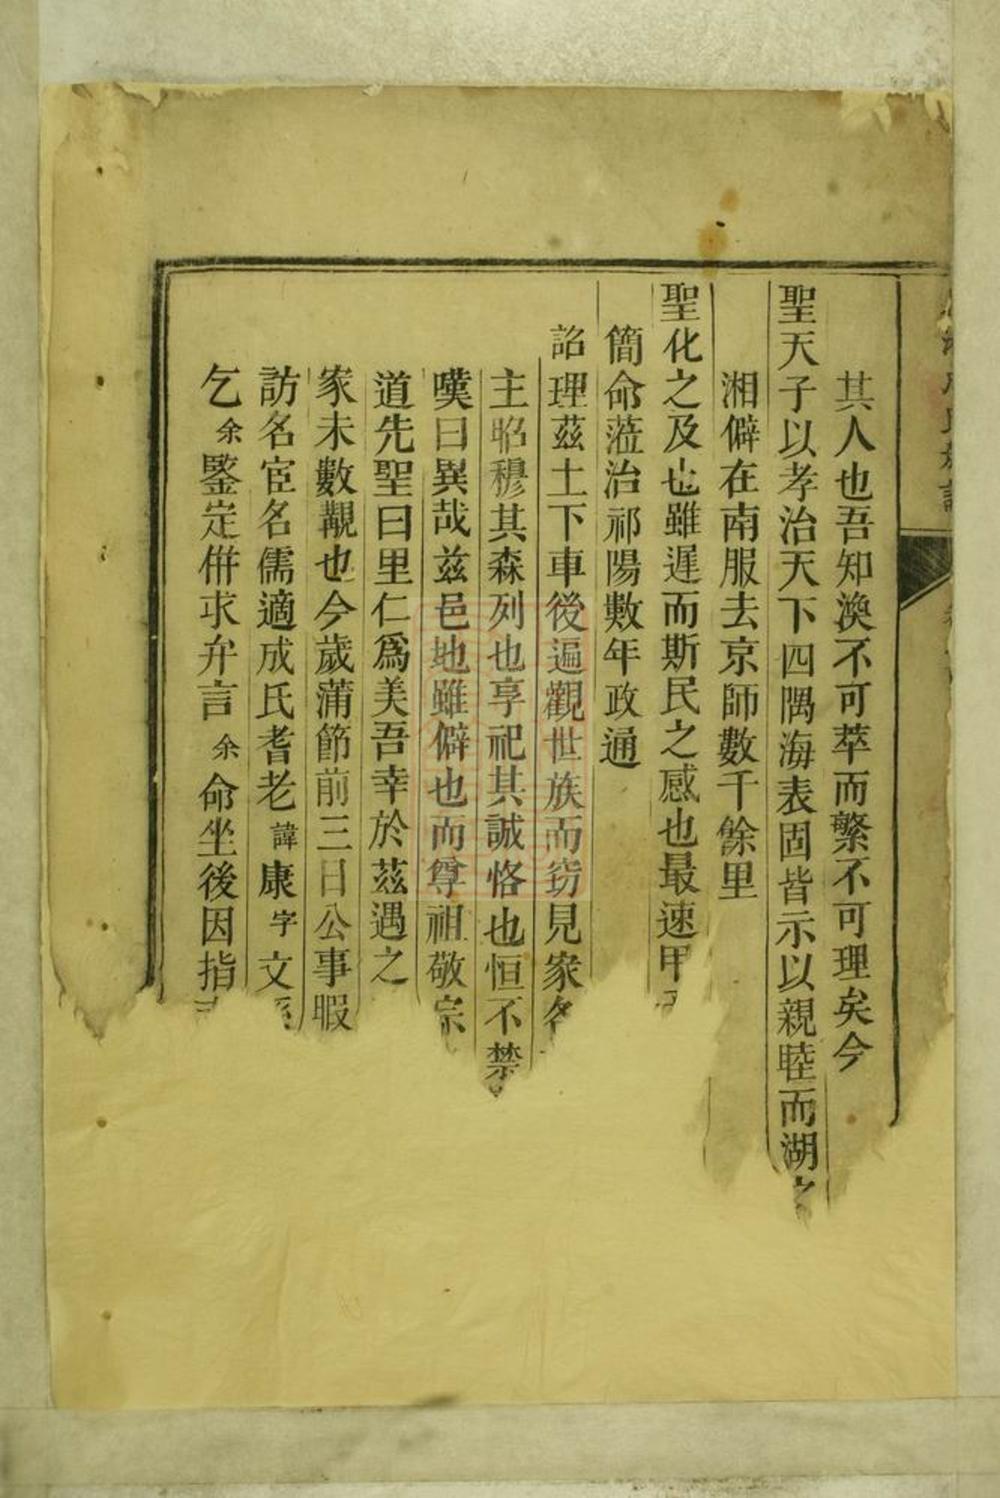 其人也吾知渙不可萃而繁不可理矣今
聖天子以孝治天下四隅海表固皆示以親睦而湖
湘僻在南服去京師數千餘里
聖化之及也雖遲而斯民之感也最速甲
簡命蒞治祁陽數年政通
詔理茲土下車後遍觀世族而窃見家各
主昭穆其森列也享祀其誠恪也恒不禁
嘆曰異哉兹邑地雖僻也而尊祖敬宗
道先聖曰里仁爲美吾幸於茲遇之
家未數覯也今歲蒲節前三日公事暇
訪名宦名儒適成氏耆老諱康字文
乞余鑒定併求弁言余命坐後因指